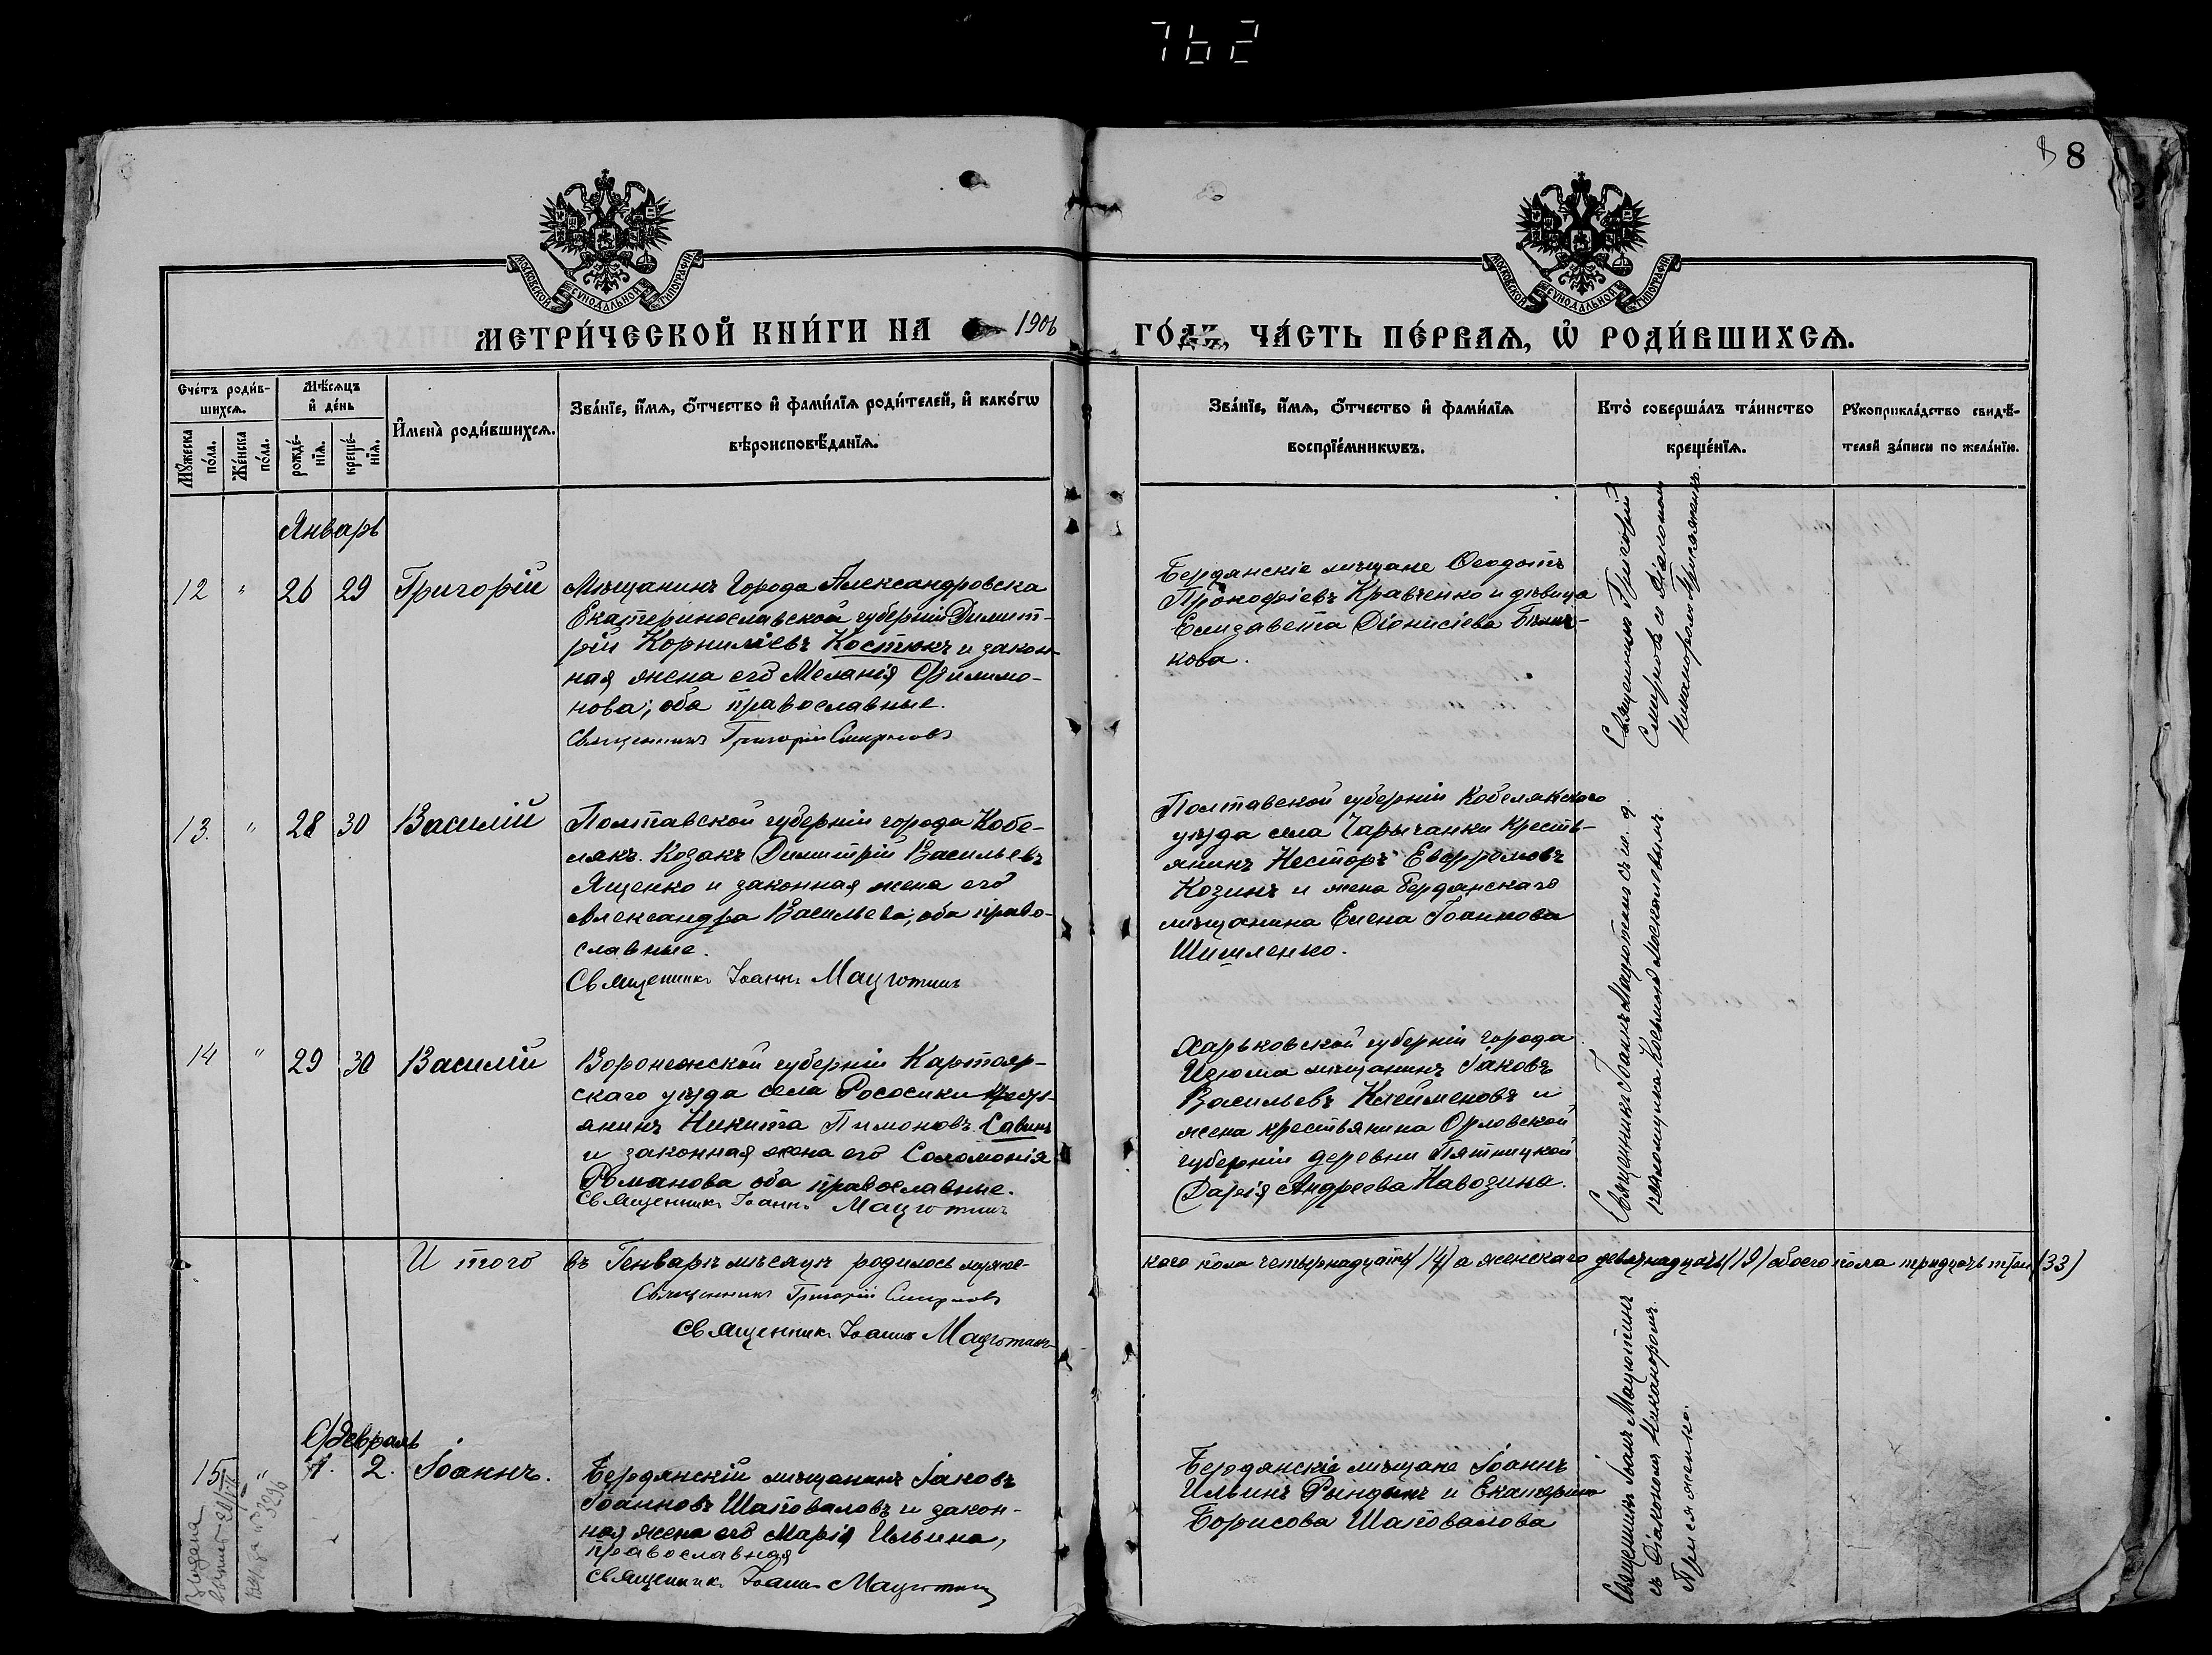 762
8
МОСКОВСКОЙ СѴНОДАЛЬНОЙ ТИПОГРАФІИ
МОСКОВСКОЙ СѴНОДАЛЬНОЙ ТИПОГРАФІИ
МЕТРИ́ЧЕСКОЙ КНИ́ГИ НА 1906 ГО́ДЪ, ЧА́СТЬ ПЕ́РВАѦ, Ѡ҆ РОДИ́ВШИХСѦ.
Сче́тъ роди́в-
шихсѧ.
Мꙋ́жеска
по́ла.
Же́нска
по́ла.
Мѣ́сѧцъ
и҆ де́нь
рожде́-
нїѧ.
креще́-
нїѧ.
И҆мена̀ роди́вшихсѧ.
Зва́нїе, и҆́мѧ, о҆́тчество и҆ фами́лїѧ роди́телей, и҆ како́гѡ
вѣроисповѣ́данїѧ.
Зва́нїе, и҆́мѧ, о҆́тчество и҆ фами́лїѧ
воспрїе́мникѡвъ.
Кто̀ соверша́лъ та́инство
креще́нїѧ.
Рꙋкоприкла́дство свидѣ́-
телей за́писи по жела́нїю.
Январь
12 " 26 29 Григорій
Мѣщанинъ города Александровска
Екатеринославской губерніи Димит-
рій Корниліевъ Костюкъ и закон-
ная жена его Меланія Филимо-
нова, оба православные.
Священникъ Григорій Смирновъ
Бердянскіе мѣщане Ѳеодотъ
Прокофіевъ Кравченко и дѣвица
Елизавета Діонисіева
кова.
Священникъ Григорій
Смирновъ съ діакономъ
Никаноромъ Присяжнюкъ.
13. " 28 30 Василій
Полтавской губерніи города Кобе-
лякъ. Козакъ Димитрій Васильевъ
Ященко и законная жена его
Александра Васильева, оба право-
славные.
Священникъ Іоаннъ Мацютинъ
Полтавской губерніи Кобелякскаго
уѣзда села Царычанки кресть-
янинъ Несторъ Евфромовъ
Козинъ и жена бердянскаго
мѣщанина Елена Іоаннова
Шишленко.
14 " 29 30 Василій
Воронежской губерніи Картояр-
скаго уѣзда села Рососики крест-
янинъ Никита Пимоновъ Савинъ
и законная жена его Соломонія
Романова оба православные.
Священникъ Іоаннъ Мацютинъ
Харьковской губерніи города
Изюма мѣщанинъ Іаковъ
Васильевъ Клейменовъ и
жена крестьянина Орловской
губерніи деревни Пятницкой
Дарія Андреева Навозина.
Священникъ Іоаннъ Мацютинъ съ и. д.
псаломщика Косьмою Москалевымъ.
И того въ Генварѣ мѣсяцѣ родилось мужес-
каго пола четырнадцать (14) а женскаго девятнадцать (19) обоего пола тридцать три (33)
Священникъ Григорій Смирновъ
Священникъ Іоаннъ Мацютинъ
Февраль
15 " 1. 2. Іоаннъ.
Бердянскій мѣщанинъ Іаковъ
Іоанновъ Шаповаловъ и закон-
ная жена его Марія Ильина,
православная
Священникъ Іоаннъ Мацютинъ
Бердянскіе мѣщане Іоаннъ
Ильинъ Рындинъ и Екатерина
Борисова Шаповалова
Священникъ Іоаннъ Мацютинъ
съ діакономъ Никаноромъ
Присяженко.
№ 3296